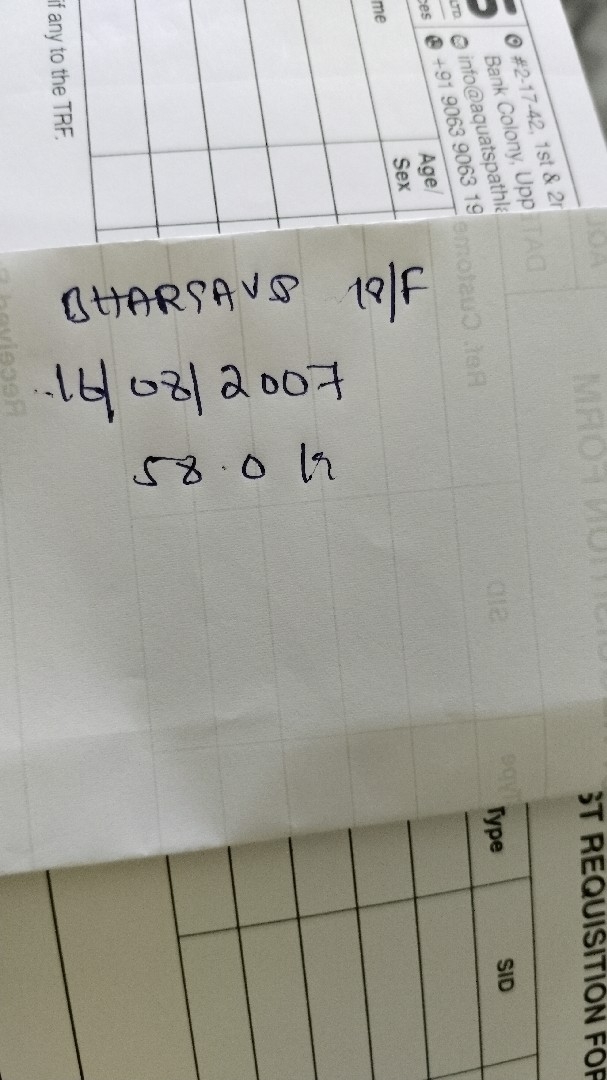 if any to the TRF.
me
ces
#2-17-42, 1st & 2n
Bank Colony, Upp
info@aquatspathla
+91 9063 9063 19
Age/
Sex
BHARGAVS 18/F
16/08/2007
58.0 k
Ref. Customer
SID
Type
SID
ST REQUISITION FOR